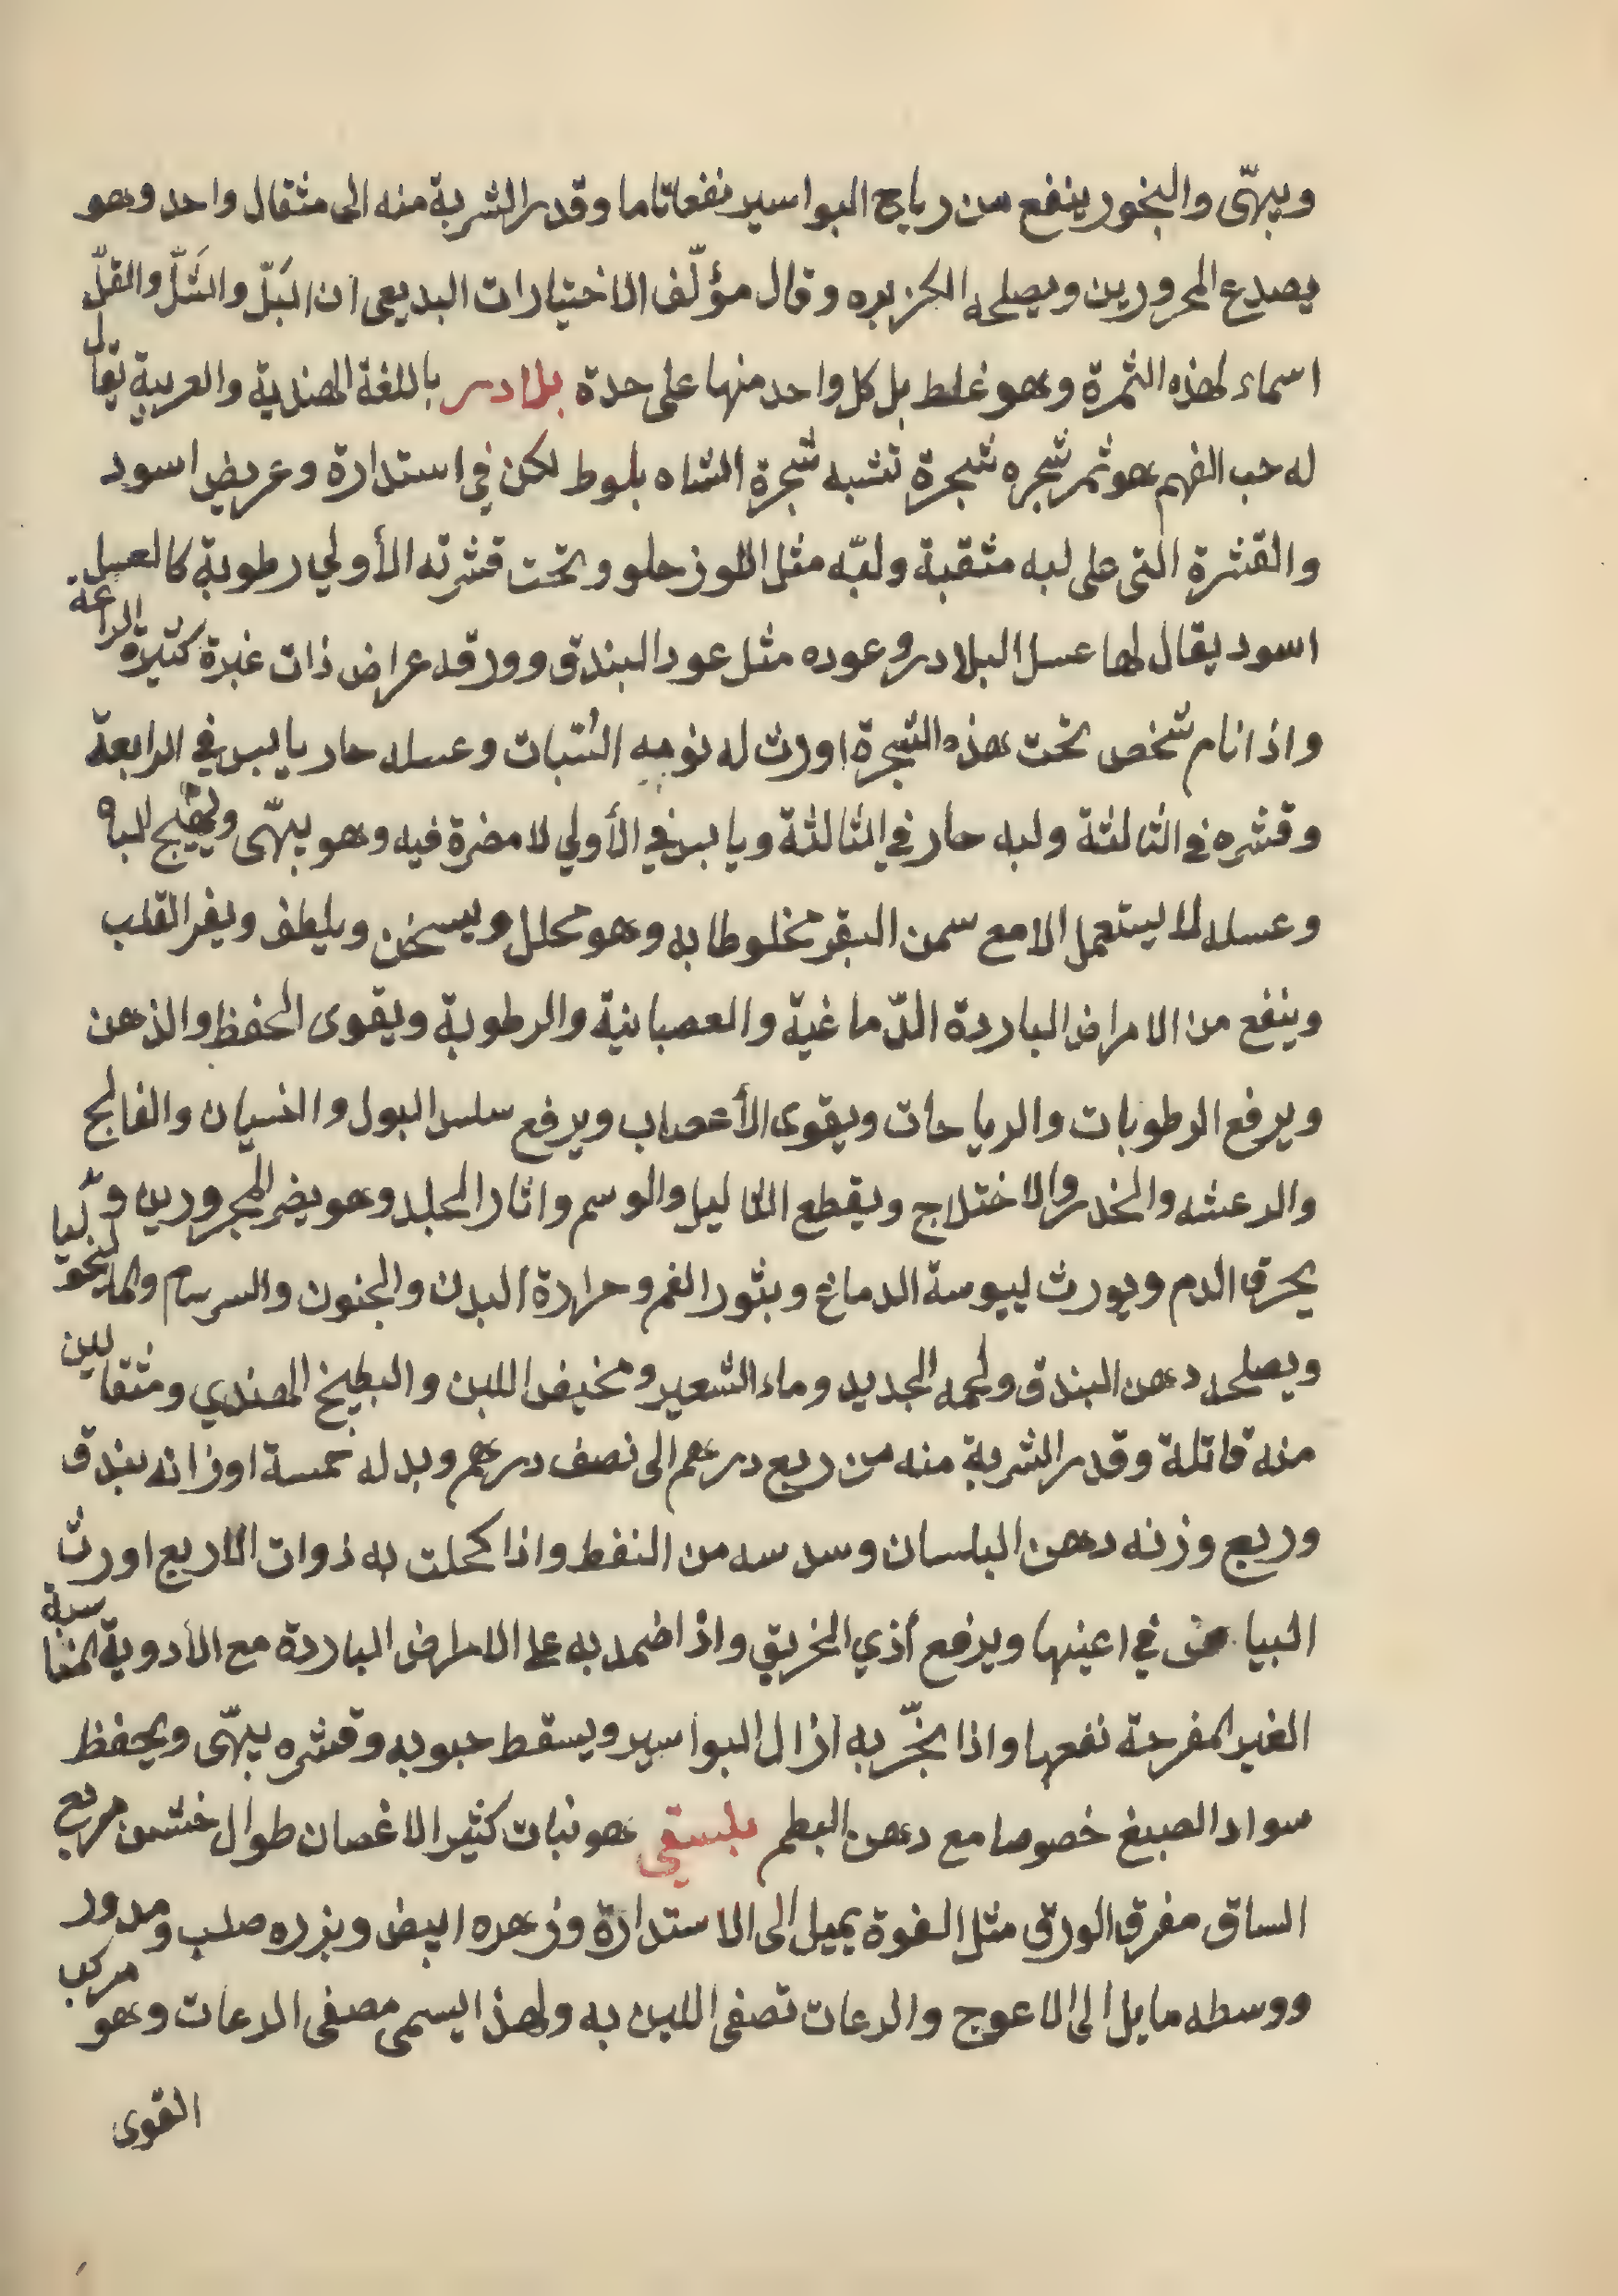 ويبهّى والبخور ينفع من رياح البواسير نفعا تاما وقدر الشربة منه الى مثقال واحد وهو
يصدع المحرورين ويصلحه الكزبره وقال مؤلّف الاختيارات البديعى ان البَلّ والشَلّ والقلّ
اسماء لهذه الثمرة وهو غلط بل كل واحد منها على حدة بلادر باللغة الهندية والعربية يقال
له حب الفهم هو ثمر شجره شجرة تشبه شجرة الشاه بلوط لكن في استدارة وعريض اسود
والقشرة التى على لبه مثقبة ولبّه مثل اللوز حلو وتحت قشرته الأولي رطوبة كالعسل
اسود يقال لها عسل البلادر وعوده مثل عود البندق وورقه عراض ذات غبرة كثيرة الرائحة
واذا نام شخص تحت هذه الشجرة اورث له نومه السُبات وعسله حار يابس في الرابعة
وقشره في الثالثة ولبه حار في الثالثة ويابس في الأولي لا مضرة فيه وهو يبهّى ويهيّج الباه
وعسله لا يستعمل الا مع سمن البقر مخلوطا به وهو محلل ويسخن ويلطف ويفر القلب
وينفع من الامراض الباردة الدّماغية والعصبانية والرطوبة ويقوى الحفظ والذهن
ويرفع الرطوبات والرياحات ويقوى الأعصاب ويرفع سلس البول والنسيان والفالج
والرعشه والخدر والاختلاج ويقطع الثاليل والوسم واثار الجلد وهو يضر المحرورين و
يحرق الدم ويورث ليبوسة الدماغ وبثور الفم وحرارة البدن والجنون والسرسام والماليخوليا
ويصلحه دهن البندق ولحمه الجديد وماء الشعير ومخيض اللبن والبطيخ الهندي ومثقالين
منه قاتلة وقدر الشربة منه من ربع درهم الى نصف درهم وبدله خمسة اوزانه بندق
وربع وزنه دهن البلسان وسدسه من النفط واذا كحلت به ذوات الاربع اورث
البياض في اعينها ويرفع أذي الخريق واذا ضمد به على الامراض الباردة مع الأدوية المناسبة
الغير المفرحة نفعها واذا بخّر به ازال البواسير ويسقط حبوبه وقشره يبهّى ويحفظ
سواد الصبغ خصوصا مع دهن البطم بلسقي هو نبات كثير الاغصان طوال خشن مربع
الساق مفرق الورق مثل الفوة يميل الى الاستدارة وزهره ابيض وبزره صلب ومدور
ووسطه مايل الى الاعوج والرعات تصفى اللبن به ولهذا يسمى مصفى الرعات وهو مركب
القوى